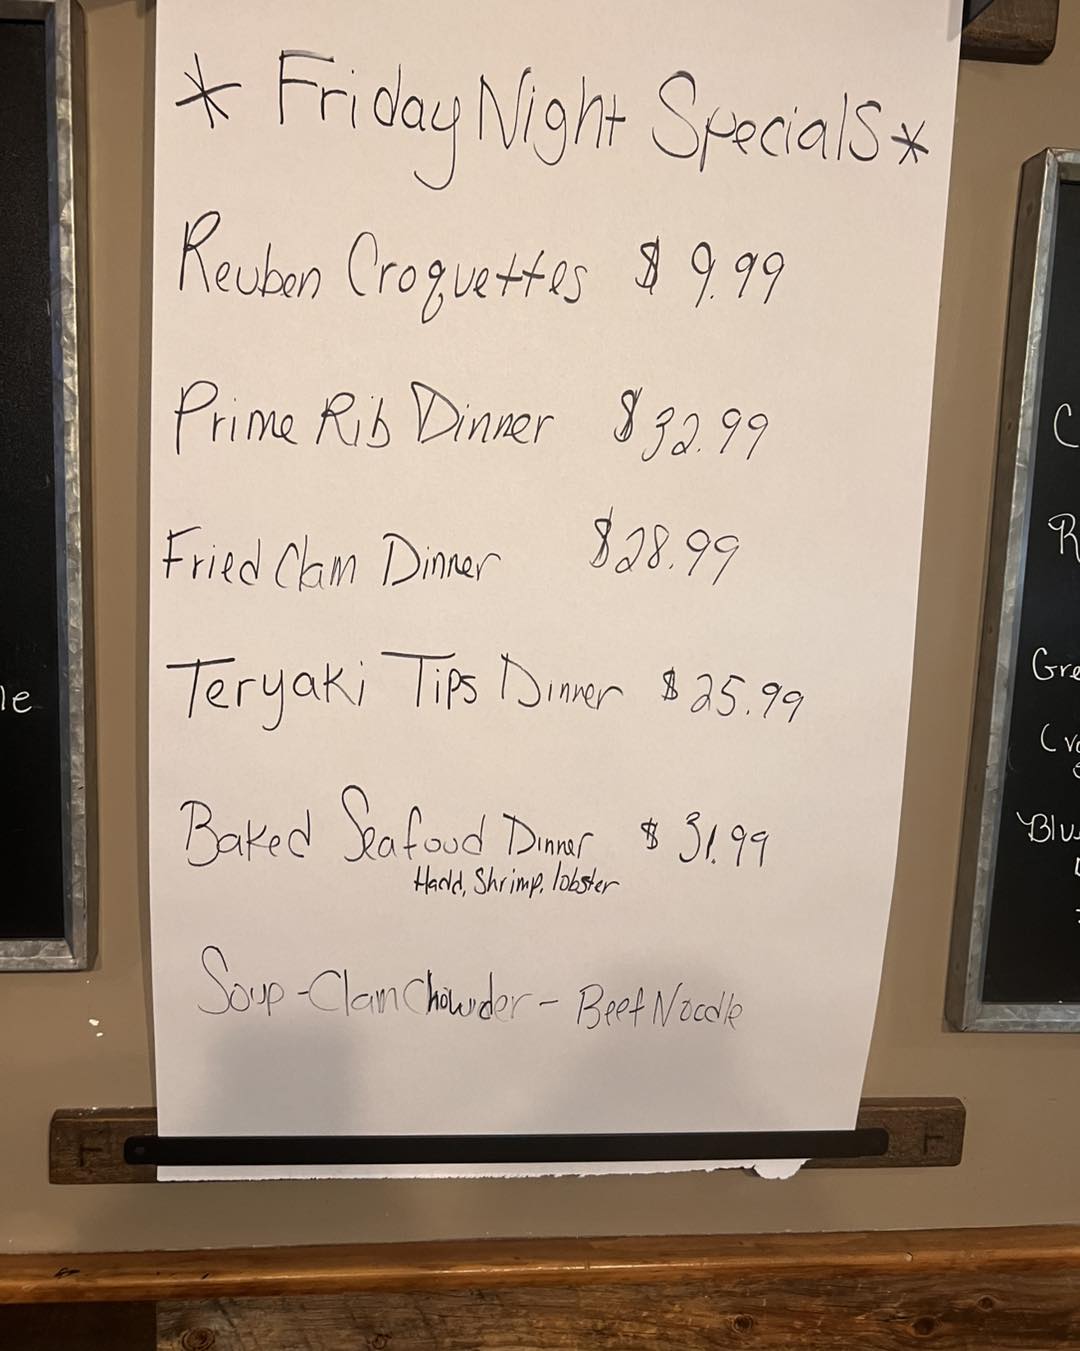 * Friday Night Specials *
Reuben Croquettes $ 9.99
Prime Rib Dinner $32.99
Fried Clam Dinner $28.99
Teryaki Tips Dinner $25.99
Baked Seafood Dinner $ 31.99
Hadd, Shrimp, lobster
Soup - Clam Chowder - Beef Noodle
le
C
R
Gre
Blu